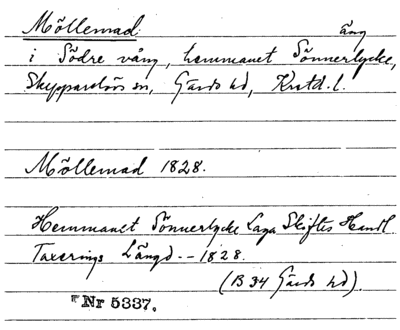 Möllemad äng
i Södre vång, hemmanet Sönnerlycke,
Skepparslövs sn, Gärds hd, Krstd. l.
Möllemad 1828.
Hemmanet Sönnerlycke Laga Skiftes Handl.
Taxerings Längd -- 1828.
(B 34 Gärds hd).
Nr 5337.